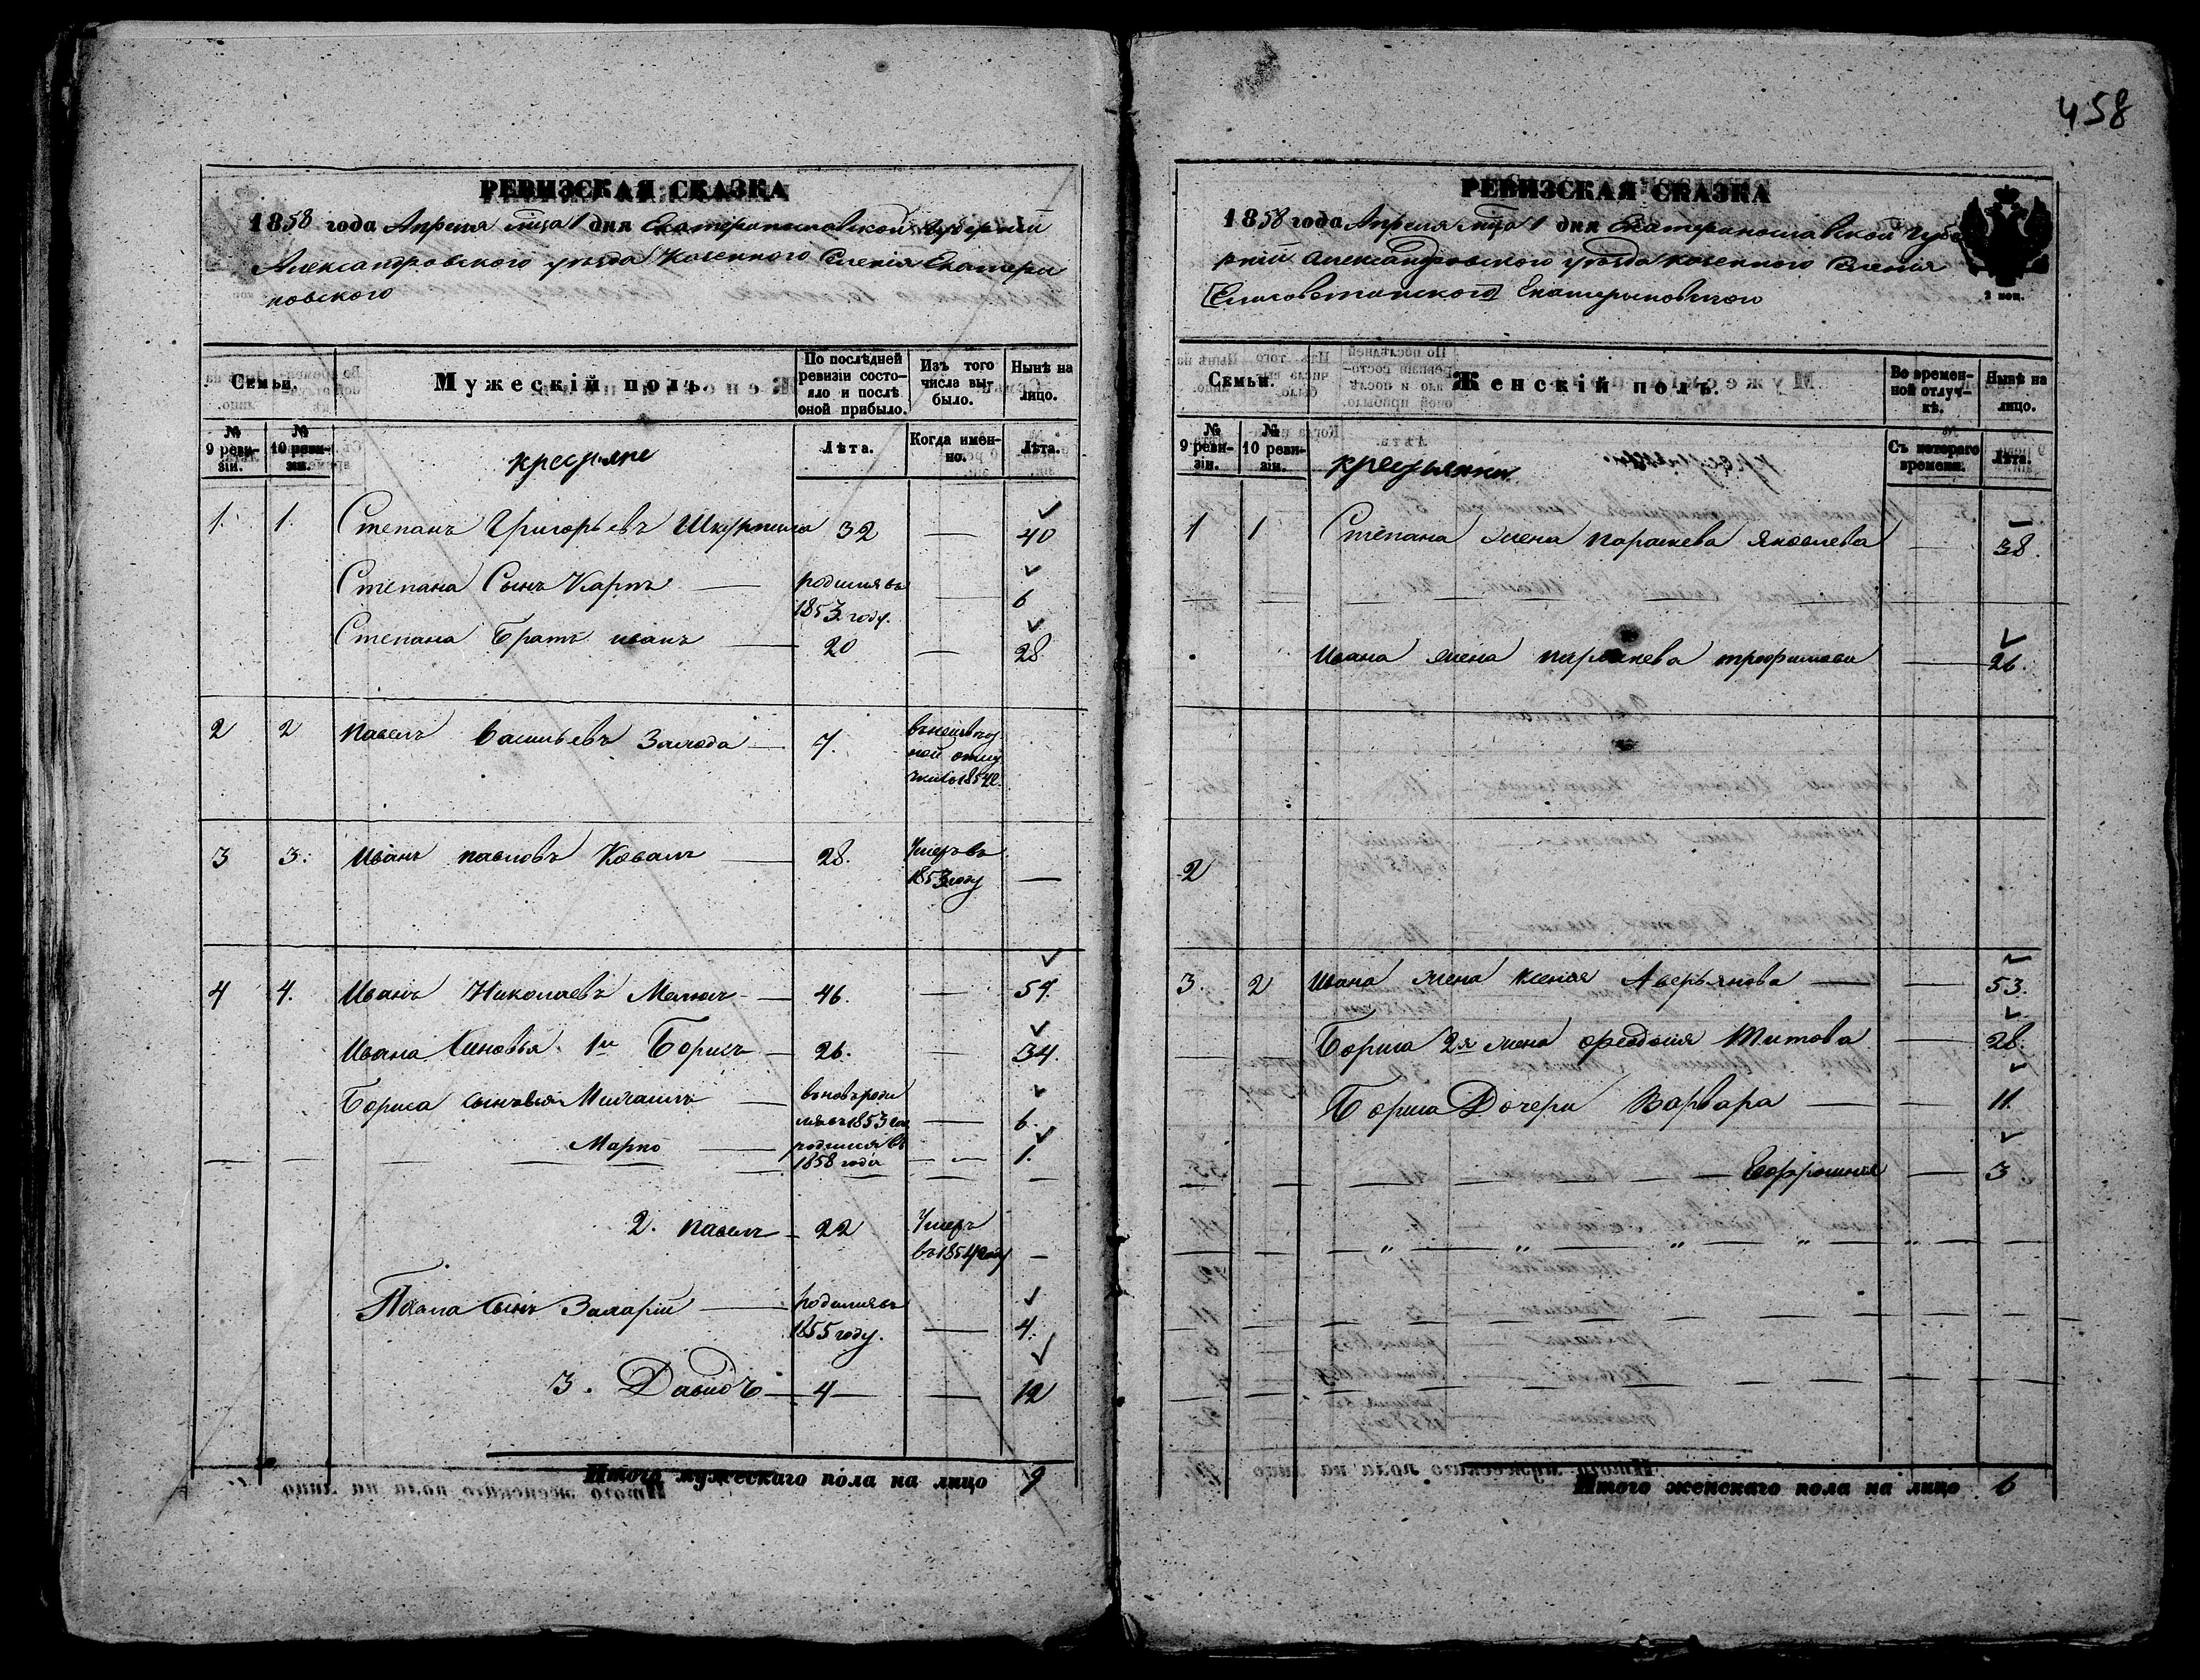 458
РЕВИЗСКАЯ СКАЗКА
1858 года Апреля мца 1 дня Екатеринославской губернiи
Александровского уезда Казенного Селенiя Екатери
новского
Семьи.
Мужескій полъ.
По послѣдней ревизіи состояло и послѣ оной прибыло.
Изъ того числа выбыло.
Нынѣ на лицо.
№ 9 ревизіи.
№ 10 ревизіи.
крестьяне
Лѣта.
Когда именно.
Лѣта.
1. 1. Степанъ Григорьевъ 32 — 40
Степана Сынъ Карпъ — родился въ 1853 году. — 6
Степана Братъ иванъ — 20 — 28
2 2 павелъ Васильевъ — 7.
3 3. Иванъ павловъ Ковалъ — 28. Умеръ въ 1853 году —
4 4. Иванъ Николаевъ — 46. — 54.
Ивана Синовья 1й Борисъ — 26. — 34.
Бориса сыновья Михаилъ — вновь родился въ 1853 году — 6.
Марко — родился въ 1858 года — 1.
2. павелъ — 22 Умеръ въ 1854 году —
Павла Сынъ Захарiй — родился въ 1855 году. — 4.
3. Давидъ — 4 — 12
Итого мужескаго пола на лицо 9
РЕВИЗСКАЯ СКАЗКА
1858 года Апреля мца 1 дня Екатеринославской Губе
рнiи Александровского уезда казенного Селенiя
Екатериновского
2 коп.
Семьи.
Женскій полъ.
Во временной отлучкѣ.
Нынѣ на лицо.
№ 9 ревизіи.
№ 10 ревизіи.
крестьянки
Съ котораго времени.
Лѣта.
1 1 Степана жена параскева Яковлева — 38.
Ивана жена параскева трофимова — 26.
2
3. 2 Ивана жена ксенiя Аверьянова — 53.
Бориса 2я жена феодосiя Титова — 28.
Бориса Дочери Варвара — 11.
Ефросинiя — 3
Итого женскаго пола на лицо 6